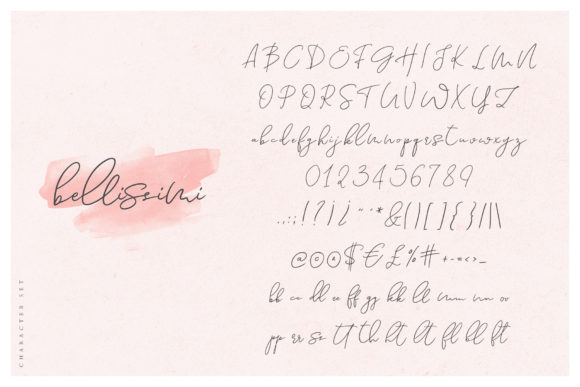 bellissimi
CHARACTER SET
ABCDEFGHIJKLMN
OPQRSTUVWXYZ
abcdefghijklmnopqrstuvwxyz
0123456789
.,:;!?¡¿"'*&()[]{}/|\
@©®$€£%#+-=<>_
bb cc dd ee ff gg kk ll mm nn oo
pp rr ss tt th ht lt fl bl ft